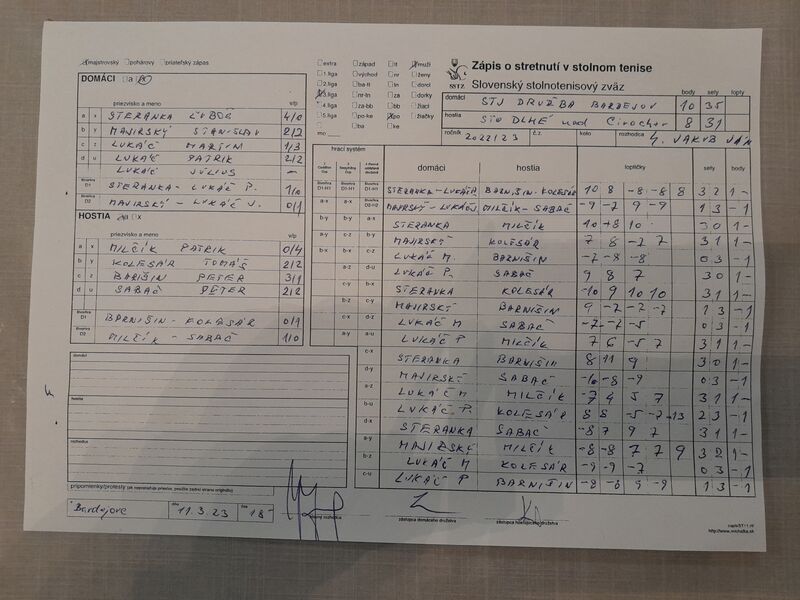 majstrovský pohárový priateľský zápas
DOMÁCI
priezvisko a meno v/p
a x STERANKA ĽUBOŠ 4/0
b y MAJIRSKÝ STANISLAV 2/2
c z LUKÁČ MARTIN 1/3
d u LUKÁČ PATRIK 2/2
LUKÁČ JÚLIUS -
D1 STERANKA - LUKÁČ P. 1/0
D2 MAJIRSKÝ - LUKÁČ J. 0/1
HOSTIA
priezvisko a meno v/p
a x MILČÍK PATRIK 0/4
b y KOLESÁR TOMÁŠ 2/2
c z BARIŠIN PETER 3/1
d u SABAČ PETER 2/2
D1 BARNIŠIN - KOLESÁR 0/1
D2 MILČÍK - SABAČ 1/0
domáci
hostia
rozhodca
pripomienky/protesty
Bardejove dňa 11.3.23
extra západ it muži
1.liga východ nr ženy
2.liga ba-tt ln dorci
3.liga nr-tn za dorky
4.liga za-bb bb žiaci
5.liga ke-po po žiačky
ba ke
Zápis o stretnutí v stolnom tenise
SSTZ Slovenský stolnotenisový zväz
body sety lopty
domáci STJ DRUŽBA BARDEJOV 10 35
hostia STO DLHÉ nad Cirochou 8 31
ročník 2022/23 č.z. kolo rozhodca JAKUB JÁN
hrací systém
domáci hostia loptičky sety body
STERANKA-LUKÁČ P. BARNIŠIN-KOLESÁR 10 8 -8 -8 8 3 2 1 -
MAJIRSKÝ-LUKÁČ J. MILČÍK-SABAČ -9 -7 9 -9 1 3 - 1
a-x STERANKA MILČÍK 10 8 10 3 0 1 -
b-y MAJIRSKÝ KOLESÁR 7 8 -2 7 3 1 1 -
c-z LUKÁČ M. BARNIŠIN -7 -8 -8 0 3 - 1
d-u LUKÁČ P. SABAČ 9 8 7 3 0 1 -
STERANKA KOLESÁR -10 9 10 10 3 1 1 -
MAJIRSKÝ BARNIŠIN 9 -7 -2 -7 1 3 - 1
LUKÁČ M SABAČ -7 -7 -5 0 3 - 1
LUKÁČ P MILČÍK 7 6 -5 7 3 1 1 -
STERANKA BARNIŠIN 8 11 9 3 0 1 -
MAJIRSKÝ SABAČ -10 -8 -9 0 3 - 1
LUKÁČ M MILČÍK -7 4 5 7 3 1 1 -
LUKÁČ P. KOLESÁR 8 8 -5 -7 -13 2 3 - 1
STERANKA SABAČ -8 7 9 7 3 1 1 -
MAJIRSKÝ MILČÍK -8 -8 7 7 9 3 2 1 -
LUKÁČ M KOLESÁR -9 -9 -7 0 3 - 1
LUKÁČ P BARNIŠIN -8 -8 9 -9 1 3 - 1
zástupca domáceho družstva
zástupca hosťujúceho družstva
http://www.michalka.sk